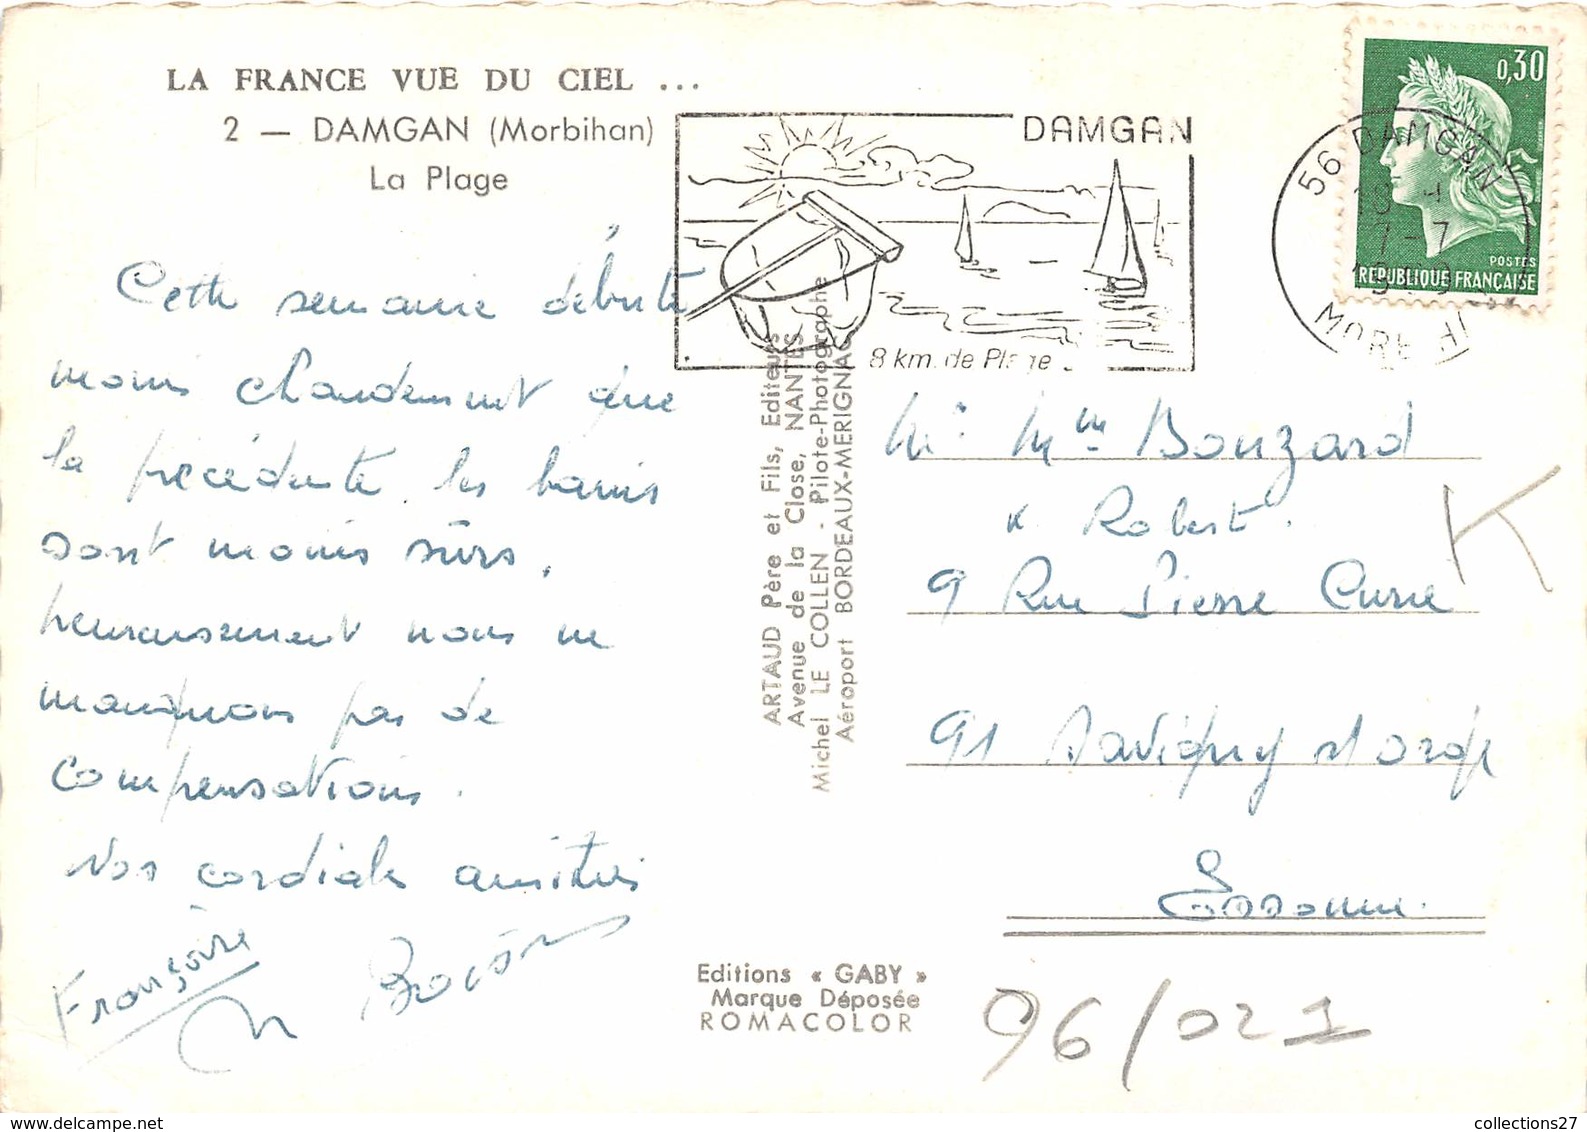 LA FRANCE VUE DU CIEL ...
2 — DAMGAN (Morbihan)
La Plage
DAMGAN
8 km. de Plage
0,30
POSTES
REPUBLIQUE FRANÇAISE
56 DAMGAN
7-7
Cette semaine débute
moins chaudement que
la précédente. les bains
sont moins sûrs.
heureusement nous ne
manquons pas de
compensations.
Nos cordiales amitiés
Françoise
ARTAUD Père et Fils, Editeurs
Avenue de la Close, NANTES
Michel LE COLLEN - Pilote-Photographe
Aéroport BORDEAUX-MERIGNAC
Mr Mme Bouzard
Robert.
9 Rue Pierre Curie
91 Savigny s/ Orge
Essonne.
K
Editions « GABY »
Marque Déposée
ROMACOLOR
96/021
collections27